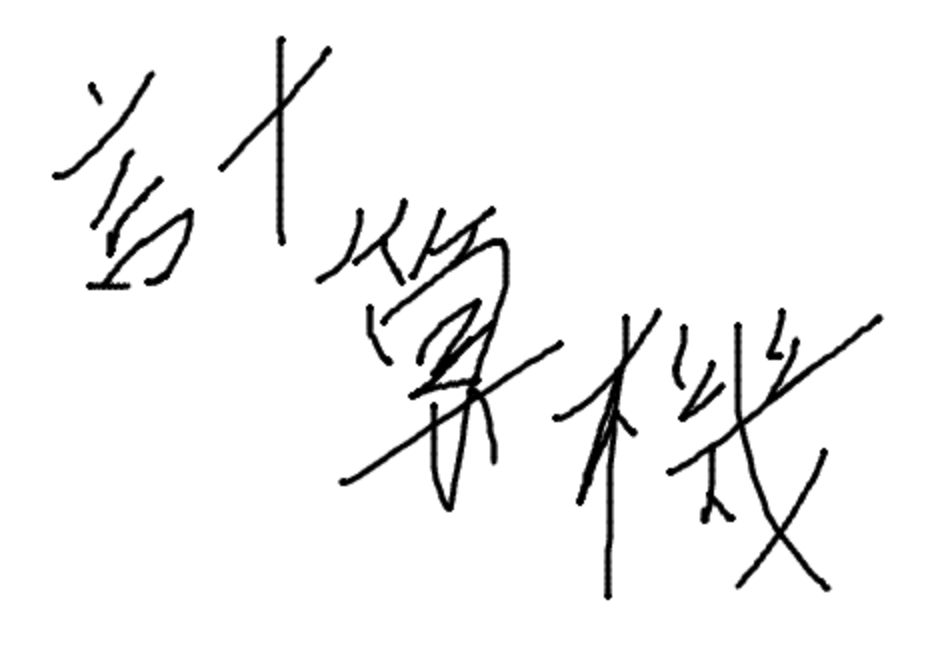 計算機